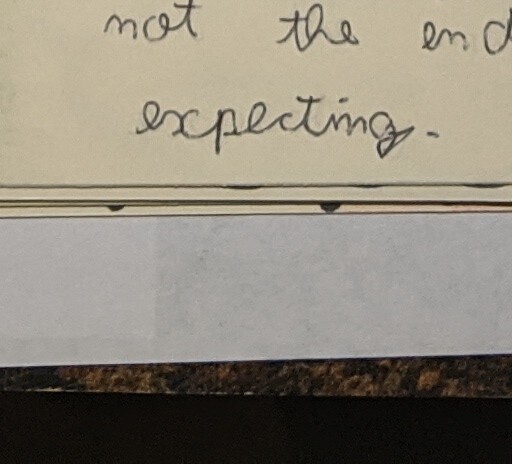 not the end
expecting.